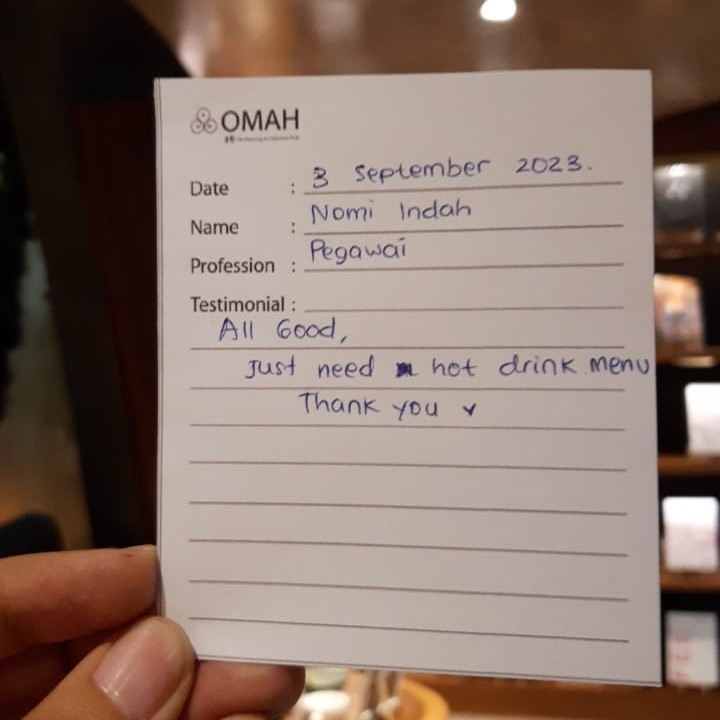 OMAH
Date : 3 September 2023.
Name : Nomi Indah
Profession : Pegawai
Testimonial :
All Good,
Just need hot drink menu
Thank you